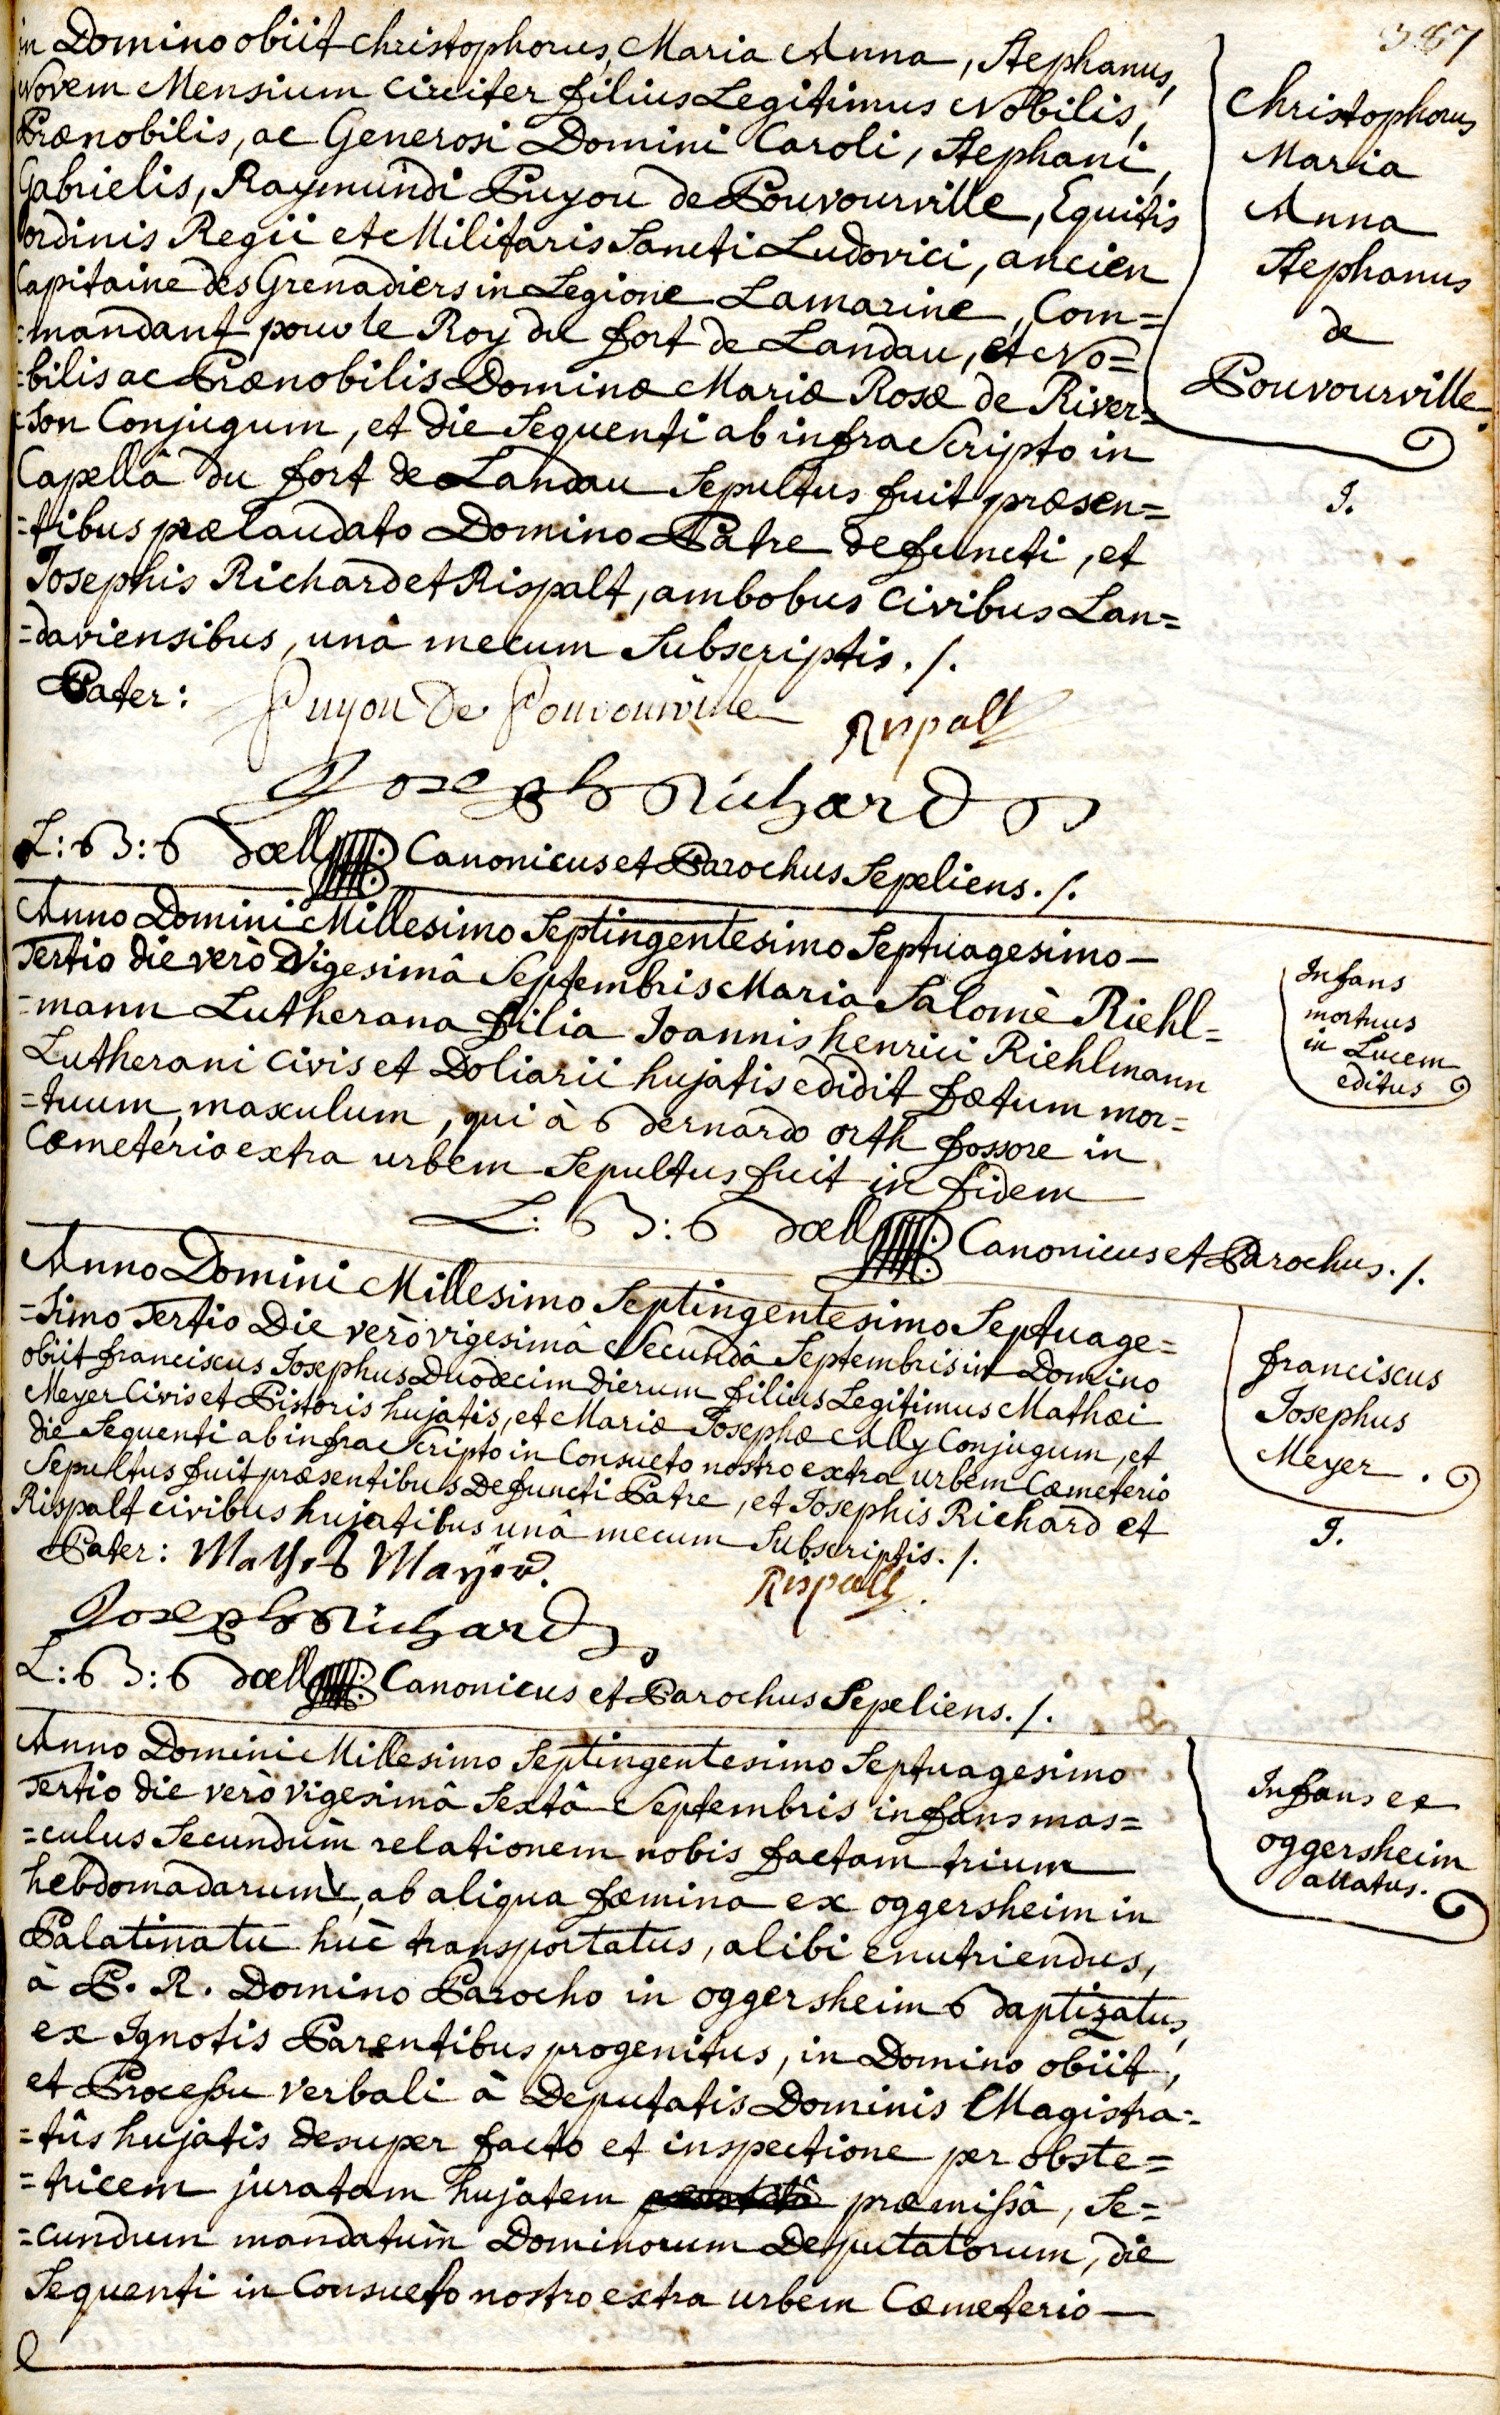 387
in Domino obiit Christophorus, Maria Anna, Stephanus,
Novem Mensium circiter filius Legitimus Nobilis,
Prænobilis, ac Generosi Domini Caroli, Stephani,
Gabrielis, Raymundi Puyou de Pouvourville, Equitis
ordinis Regii et Militaris Sancti Ludovici, ancien
Capitaine des Grenadiers in Legione Lamarine, Com=
=mandant pour le Roy du fort de Landau, et No=
=bilis ac Prænobilis Dominæ Mariæ Rosæ de River=
=son Conjugum, et die Sequenti ab infra Scripto in
Capellâ du fort de Landau Sepultus fuit præsen=
=tibus prælaudato Domino Patre defuncti, et
Josephis Richard et Rispalt, ambobus Civibus Lan=
=daviensibus, unâ mecum Subscriptis ./.
Pater: Puyou De Pouvourville Rispalt
Joseph Richard
L: B: Boell Canonicus et Parochus Sepeliens ./.
Christophorus
Maria
Anna
Stephanus
de
Pouvourville.
J.
Anno Domini Millesimo Septingentesimo Septuagesimo
Tertio die verò Vigesimâ Septembris Maria Salomè Riehl=
=mann Lutherana filia Joannis henrici Riehlmann
Lutherani Civis et Doliarii hujatis edidit fœtum mor=
=tuum, masculum, qui à Bernardo orth fossore in
Cœmeterio extra urbem Sepultus fuit in fidem
L: B: Boell Canonicus et Parochus ./.
Infans
mortuus
in Lucem
editus
Anno Domini Millesimo Septingentesimo Septuage=
=simo Tertio Die verò vigesimâ Secundâ Septembris in Domino
obiit franciscus Josephus Duodecim dierum filius Legitimus Mathæi
Meyer Civis et Pistoris hujatis, et Mariæ Josephæ Ally Conjugum, et
die Sequenti ab infra Scripto in Consueto nostro extra urbem Cœmeterio
Sepultus fuit præsentibus Defuncti Patre, et Josephis Richard et
Rispalt civibus hujatibus unâ mecum Subscriptis ./.
Pater: Mathes Mayer. Rispalt
Joseph Richard
L: B: Boell Canonicus et Parochus Sepeliens ./.
franciscus
Josephus
Meyer.
J.
Anno Domini Millesimo Septingentesimo Septuagesimo
Tertio die verò vigesimâ Sextâ Septembris infans mas=
=culus Secundùm relationem nobis factam trium
hebdomadarum, ab aliqua fœmina ex oggersheim in
Palatinatu hûc transportatus, alibi enutriendus,
à P. R. Domino Parocho in oggersheim Baptizatus,
ex Ignotis Parentibus progenitus, in Domino obiit,
et Processu verbali à Deputatis Dominis Magistra=
=tûs hujatis desuper facto et inspectione per obste=
=tricem juratam hujatem præmissâ, Se=
=cundum mandatum Dominorum Deputatorum, die
Sequenti in Consueto nostro extra urbem Cœmeterio
Infans ex
oggersheim
allatus.